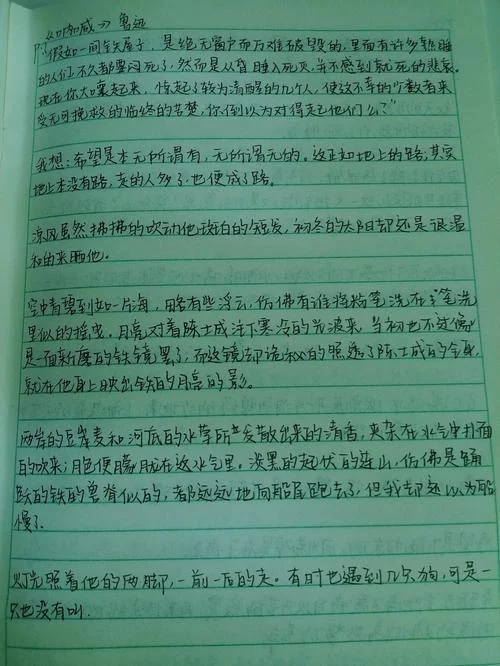 《呐喊》 鲁迅
"假如一间铁屋子，是绝无窗户而万难破毁的，里面有许多熟睡
的人们，不久都要闷死了，然而是从昏睡入死灭，并不感到就死的悲哀。
现在你大嚷起来，惊起了较为清醒的几个人，使这不幸的少数者来
受无可挽救的临终的苦楚，你倒以为对得起他们么？"
我想：希望是本无所谓有，无所谓无的。这正如地上的路；其实
地上本没有路，走的人多了，也便成了路。
凉风虽然拂拂的吹动他斑白的短发，初冬的太阳却还是很温
和的来晒他。
空中青碧到如一片海，略有些浮云，仿佛有谁将粉笔洗在笔洗
里似的摇曳。月亮对着陈士成注下寒冷的光波来，当初也不过像
是一面新磨的铁镜罢了，而这镜却诡秘的照透了陈士成的全身，
就在他身上映出铁的月亮的影。
两岸的豆麦和河底的水草所发散出来的清香，夹杂在水气中扑面
的吹来；月色便朦胧在这水气里。淡黑的起伏的连山，仿佛是踊
跃的铁的兽脊似的，都远远地向船尾跑去了，但我却还以为船
慢了。
灯光照着他的两脚，一前一后的走。有时也遇到几只狗，可是一
只也没有叫.